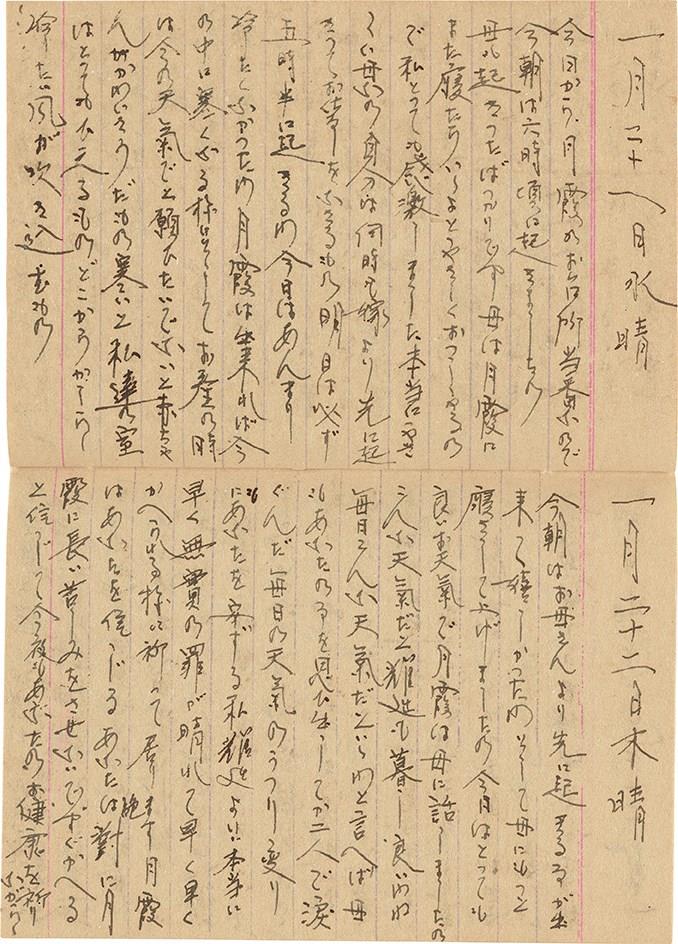 一月二十一日水晴
今日から月霞のお台所当番なので
今朝は六時頃に起きましたら
母も起きたばかりです 母は月霞に
まだ寝たらいゝよとやさしくおつしやるの
で私とつても感激しました 本当に
母の自分は何時も嫁より先に起
きてお仕事をなさるもの 明日は必ず
五時半に起きるわ 今日はあんまり
冷たくなかつたわ 月霞は出来れば今
の中に寒くなる様にそしてお産の時
は今の天気でと願ひたいですいと赤ちや
んがかわいさうだもの 寒いと私達の室
はとつても冷えるもの どこからか
冷たい風が吹き込むもの
一月二十二日木晴
今朝はお母さんより先に起きる事が出
来て嬉しかつたわ そして母にもつと
寝さして上げましたの 今日はとつても
良いお天気で月霞は母に話しましたの
こんな天気だと難迫も暮し良いわね
毎日こんな天気だといゝわと言へば母
もあなたの事を思ひ出してか二人で涙
ぐんだ 毎日の天気のうつり変り
にもあなたを案ずる私 本当に
早く無実の罪が晴れて早く早く
かへられる様に祈つて居ります 月霞
はあなたを信じる あなたは絶対に月
霞に長い苦しみをさせないですぐかへる
と信じて今夜もあなたの御健康を祈り
ながら